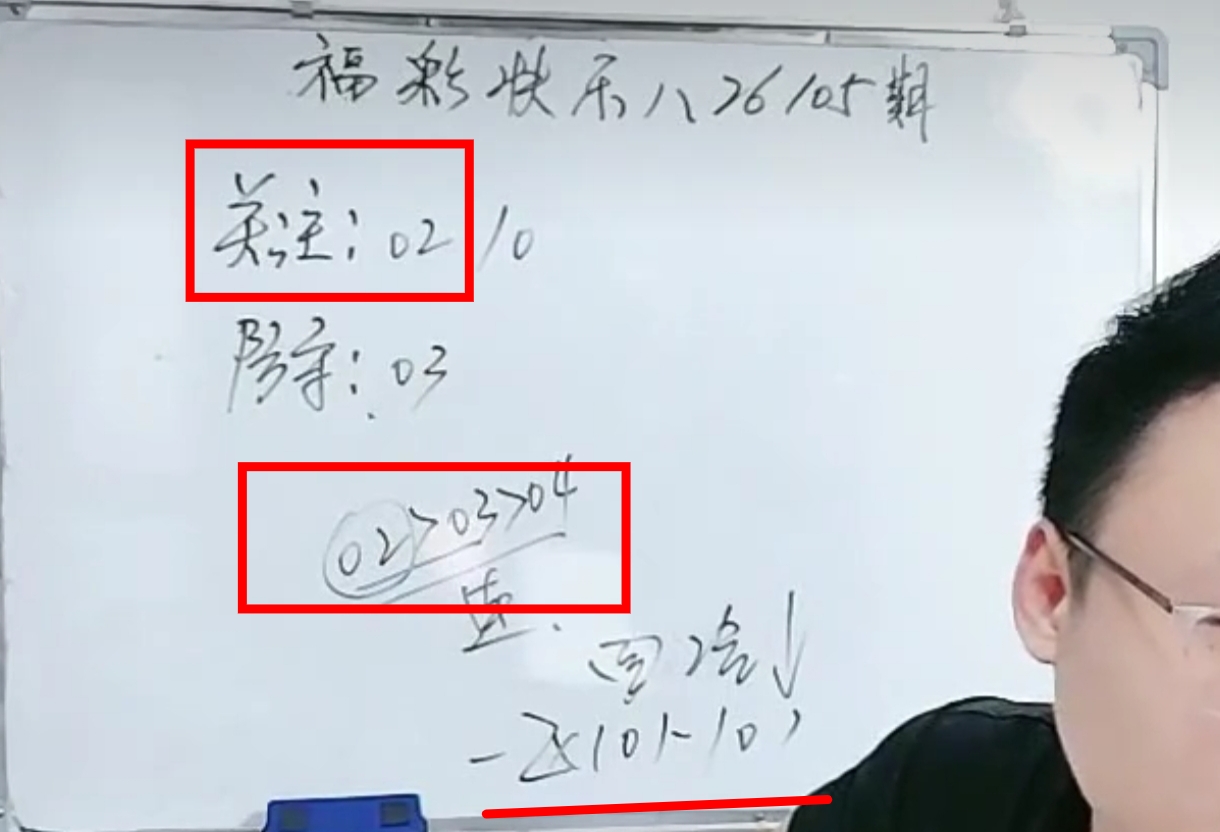 福彩快乐八26105期
关注：02 10
防守：03
02>03>04
一区(01-10)